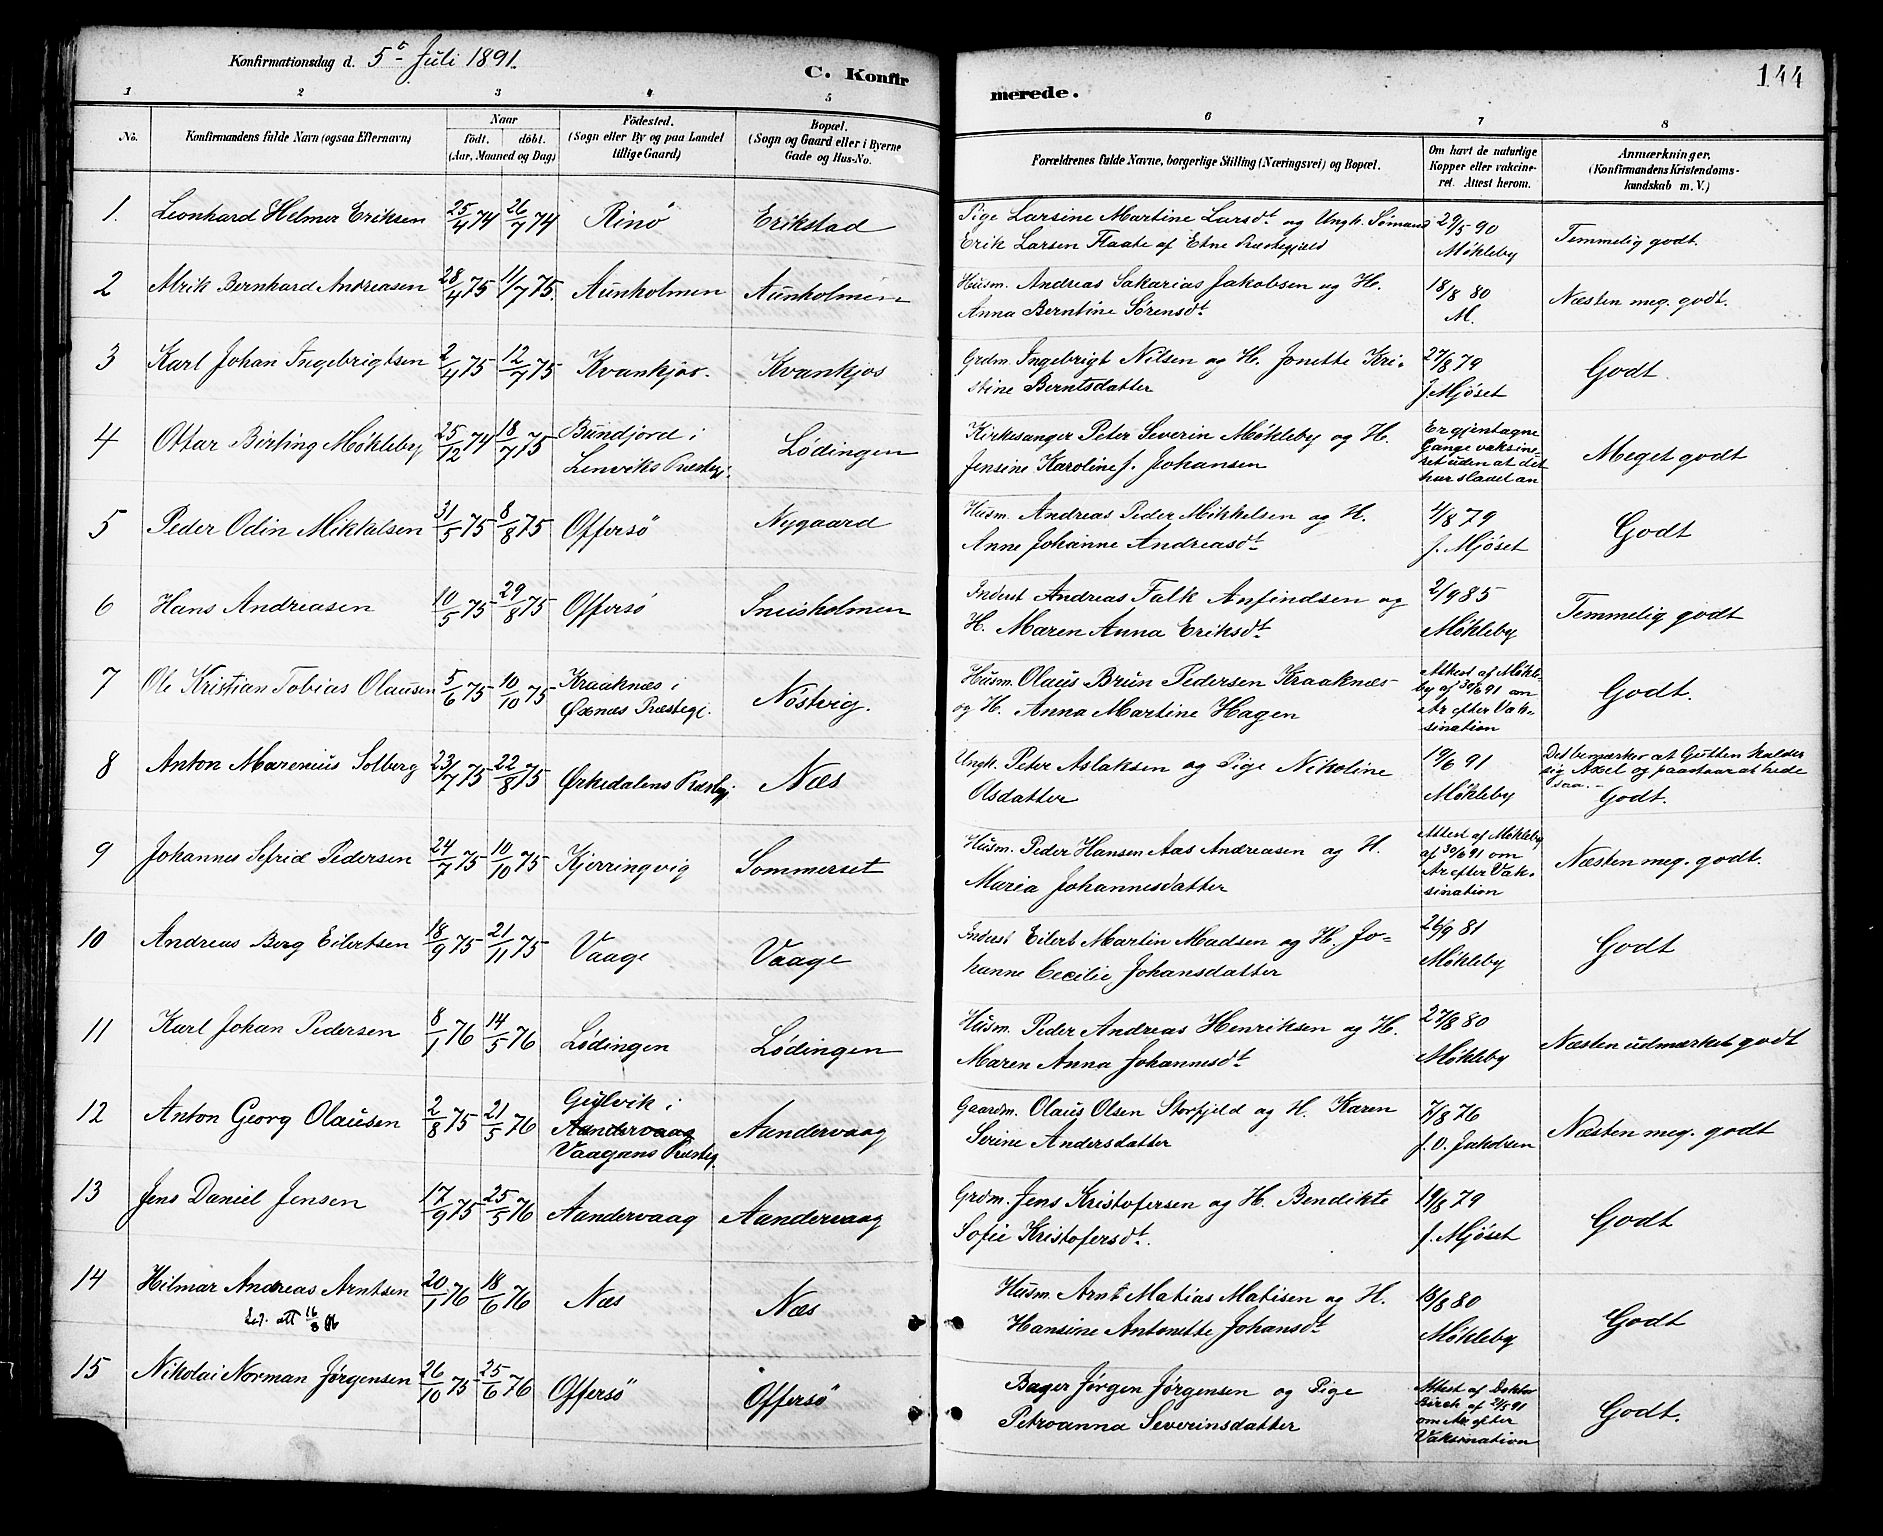 Konfirmationsdag d. 5te Juli 1891.
C. Konfir
merede.
144
1 2 3 4 5 6 7 8
No.
Konfirmandens fulde Navn (ogsaa Efternavn)
Naar
født. døbt.
(Aar, Maaned og Dag)
Födested.
(Sogn eller By og paa Landet
tillige Gaard)
Bopæl.
(Sogn og Gaard eller i Byerne
Gade og Hus-No.
Forældrenes fulde Navne, borgerlige Stilling (Næringsvei) og Bopæl.
Om havt de naturlige
Kopper eller vakcine-
ret. Attest herom.
Anmærkninger.
(Konfirmandens Kristendoms-
kundskab m. V.)
1. Leonhard Helmer Eriksen 25/4 74 26/7 74 Rinö Erikstad Pige Larsine Martine Larsdt og Ungk. Sømand 29/5 90 Temmelig godt.
Erik Larsen Flaate af Etne Præstegjeld Møkleby
2 Alrik Bernhard Andreasen 28/4 75 11/7 75. Aunholmen Aunholmen Husm. Andreas Sakarias Jakobsen og H. 18/8 80 Næsten meg. godt.
Anna Berntine Sørensdt M.
3 Karl Johan Ingebrigtsen 2/4 75 12/7 75 Kvankjos. Kvankjos Grdm. Ingebrigt Nilsen og H. Jonette Kri- 27/8 79 Godt.
stine Berntsdatter J. Mjöset
4 Ottar Birting Møkleby 25/12 74 18/7 75 Bundjord i Lødingen Kirkesanger Peter Severin Møkleby og H. Er gjentagne
Lenviks Præstegj. Jensine Karoline f. Johansen Gange vaksine-
ret uden at det Meget godt
har slaaet an
5 Peder Odin Mikkalsen 31/5 75 8/8 75 Offersö Nygaard Husm. Andreas Peder Mikkelsen og H. 4/8 79 Godt
Anne Johanne Andreasdt f. Mjöset
6 Hans Andreasen 10/5 75 29/8 75 Offersö Sneisholmen Inderst Andreas Falk Anfindsen og 2/9 85 Temmelig godt
H. Maren Anna Eriksdt Møkleby
7 Ole Kristian Tobias Olausen 5/6 75 10/10 75 Kraaknæs i Nöstvig. Husm Olaus Brun Pedersen Kraaknæs Attest af Møkle-
Øxnæs Præstegj. og H. Anna Martine Hagen by af 30/6 91 om Godt.
Ar efter Vak-
sination
8 Anton Marenius Solberg 23/7 75 22/8 75 Ørkedalens Præstegj. Næs Ungk. Peter Aslaksen og Pige Nikoline 19/6 91 Det bemærker at Gutten kalder
Olsdatter Møkleby sig Axel og paastaar at hede
saa. -
Godt.
9 Johannes Sefrid Pedersen 24/7 75 10/10 75 Kjerringvig Sommerset Husm. Peder Hansen Aas Andreasen og H. Attest af Møkleby
Maria Johannesdatter af 30/6 91 om Næsten meg. godt.
Ar efter Vak-
sination
10 Andreas Berg Eilertsen 18/9 75 21/11 75 Vaage Vaage Inderst Eilert Martin Madsen og H. Jo- 26/9 81 Godt
hanne Cecilie Johansdatter Møkleby
11 Karl Johan Pedersen 8/1 76 14/5 76 Lødingen Lødingen Husm. Peder Andreas Henriksen og H. 27/8 80 Næsten udmærket godt
Maren Anna Johannesdt Møkleby
12 Anton Georg Olausen 2/8 75 21/5 76 Gulvik i Aandervaag Gaardm. Olaus Olsen Storfjeld og H. Karen 7/8 76 Næsten meg. godt
Aandervaag Serine Andersdatter f. O. Jakobsen
Vaagans Præsteg.
13 Jens Daniel Jensen 17/9 75 25/5 76 Aandervaag Aandervaag Grdm. Jens Kristofersen og H. Bendikte 19/8 79 Godt
Sofie Kristofersdt. f. Mjöset
14 Hilmar Andreas Arntsen 20/1 76 18/6 76 Næs Næs Husm. Arnt Matias Matisen og H. 18/8 80 Godt
Hansine Antonette Johansdt Møkleby
15 Nikolai Norman Jørgensen 26/10 75 25/6 76 Offersö Offersö Bager Jørgen Jørgensen og Pige Attest af Doktor
Petroanna Severinsdatter Birch af 2/5 91 Godt.
om Ar efter
Vaksination